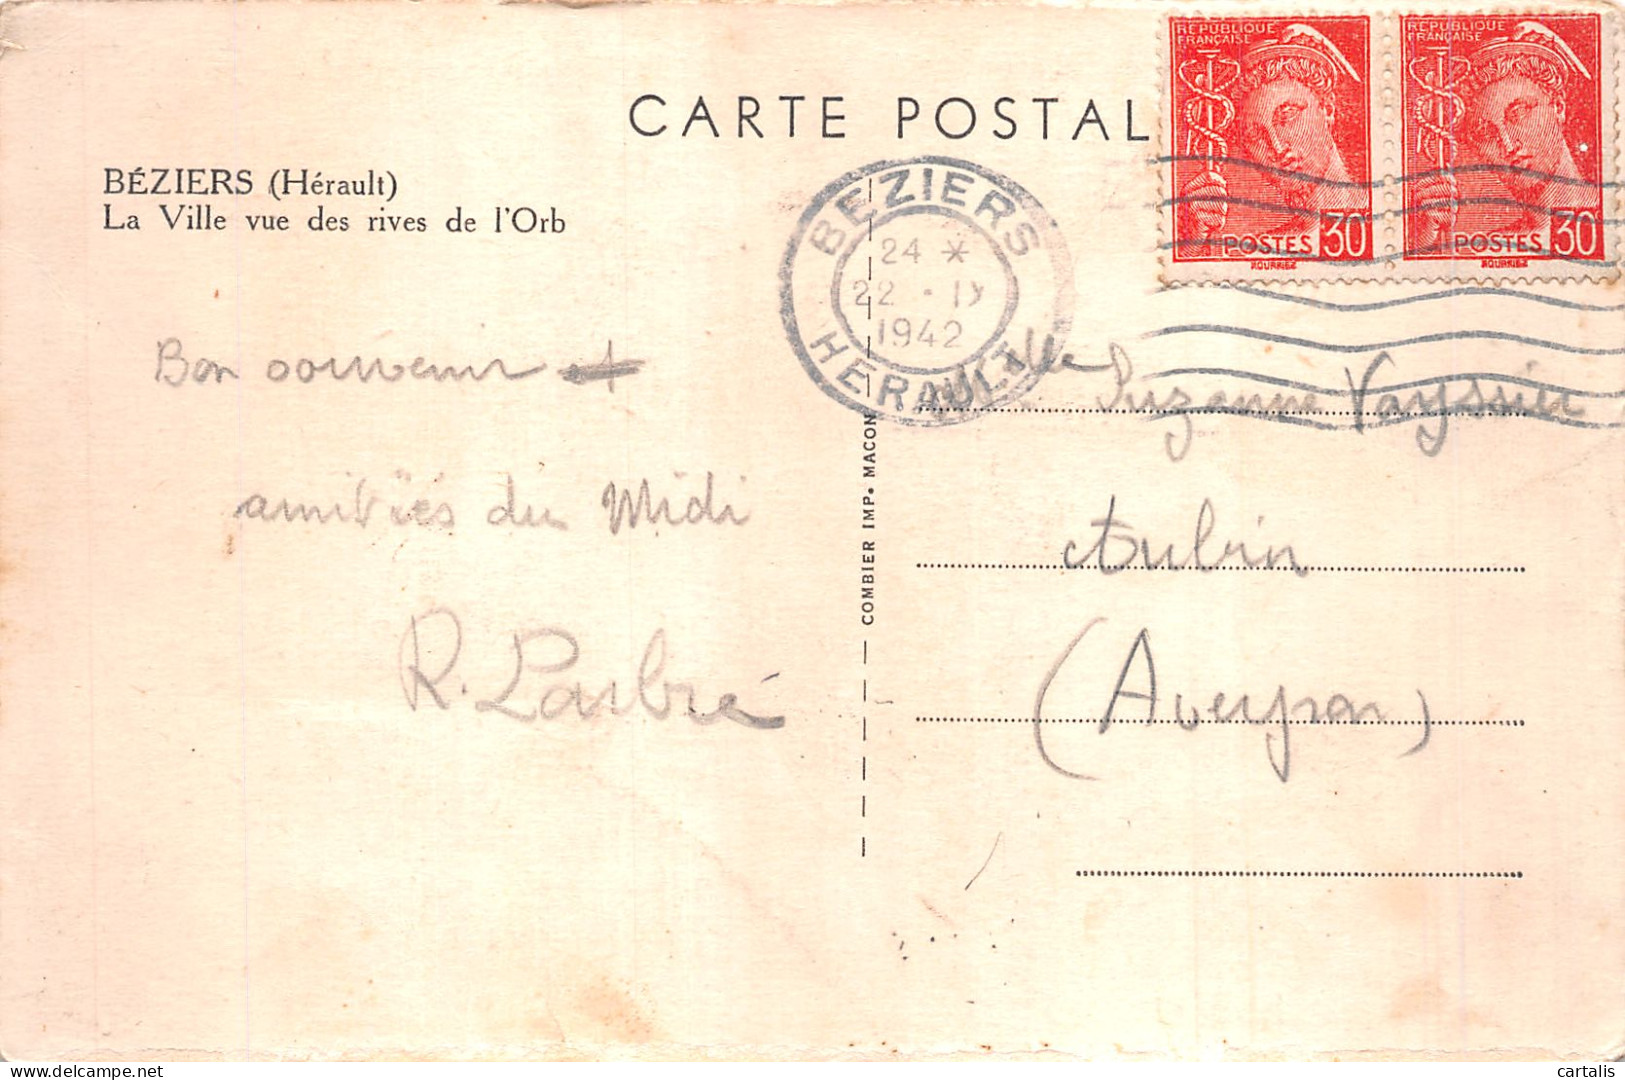 CARTE POSTAL
BÉZIERS (Hérault)
La Ville vue des rives de l'Orb
RÉPUBLIQUE
FRANÇAISE
POSTES 30
RÉPUBLIQUE
FRANÇAISE
POSTES 30
BEZIERS
24 *
22 - IX
1942
HERAULT
Bon souvenir +
amitiés du Midi
R. Larbré
Suzanne Vayssier
Aubin
(Aveyron)
COMBIER IMP. MACON
cartalis
delcampe.net